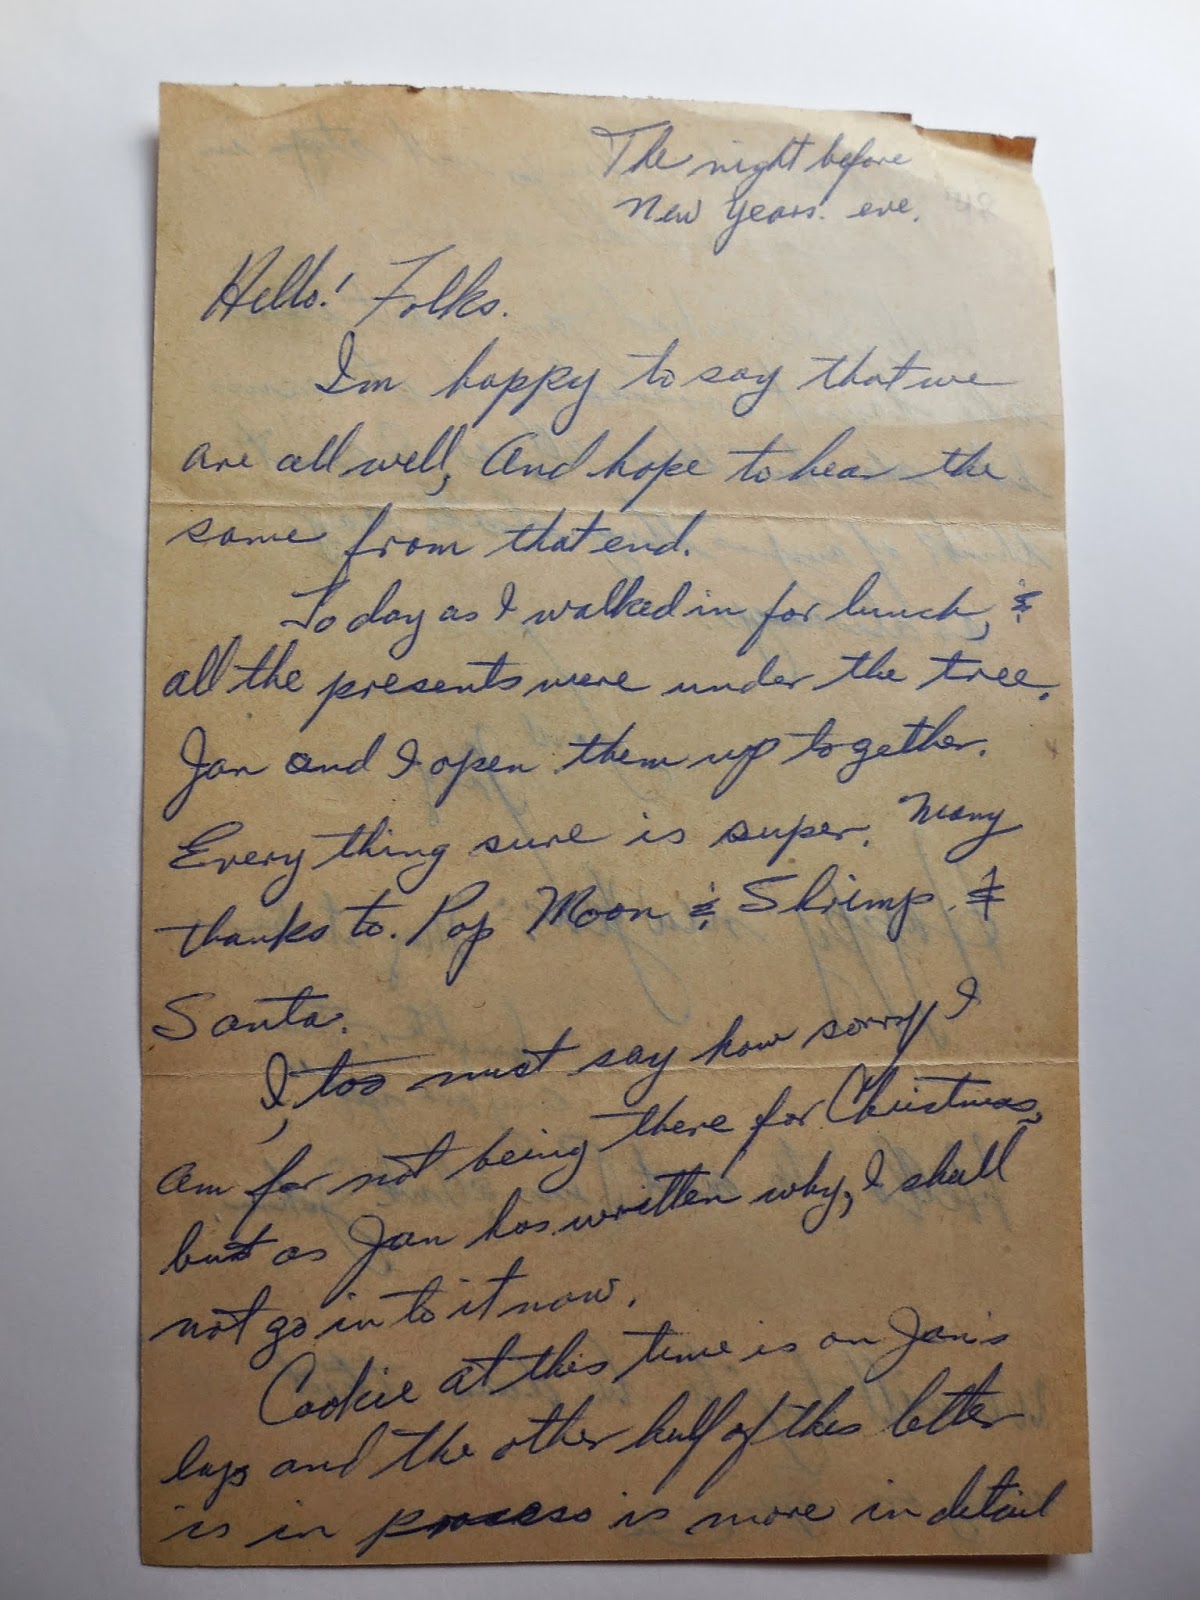 The night before
New Years. eve.
Hello! Folks.
I'm happy to say that we
are all well, And hope to hear the
same from that end.
To day as I walked in for lunch, &
all the presents were under the tree.
Jan and I open them up together.
Every thing sure is super. Many
thanks to. Pop Moon & Shrimp. &
Santa.
I, too must say how sorry I
am for not being there for Christmas,
but as Jan has written why, I shall
not go in to it now.
Cookie at this time is on Jan's
lap and the other half of this letter
is in process is more in detail